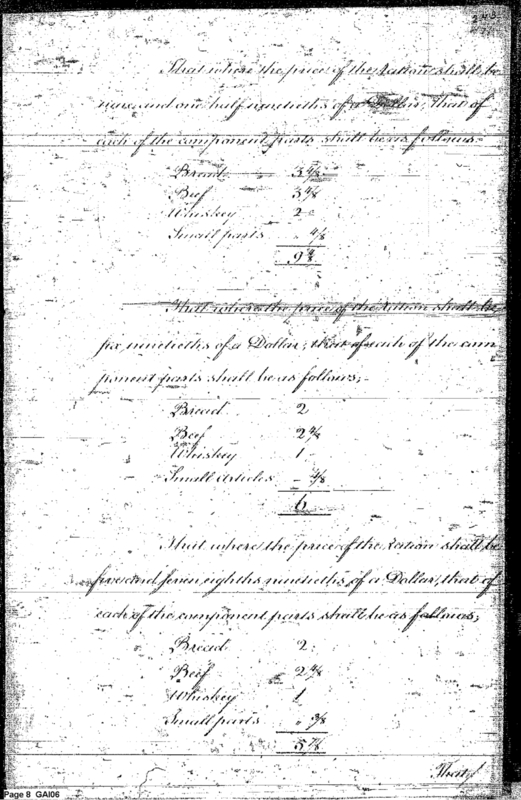 That where the price of the Ration shall be
nine and one half ninetieths of a Dollar, that of
each of the component parts shall be as follows
Bread 3 4/8
Beef 3 4/8
Whiskey 2
Small parts " 4/8
9 4/8
That where the price of the Ration shall be
six, ninetieths of a Dollar; that of each of the com
ponent parts shall be as follows;
Bread 2
Beef 2 4/8
Whiskey 1
Small Articles - 4/8
6
That where the price of the Ration shall be
five and seven eighths ninetieths of a Dollar, that of
each of the component parts shall be as follows;
Bread 2
Beef 2 4/8
Whiskey 1
Small parts " 3/8
5 7/8
That
Page 8 GAI06